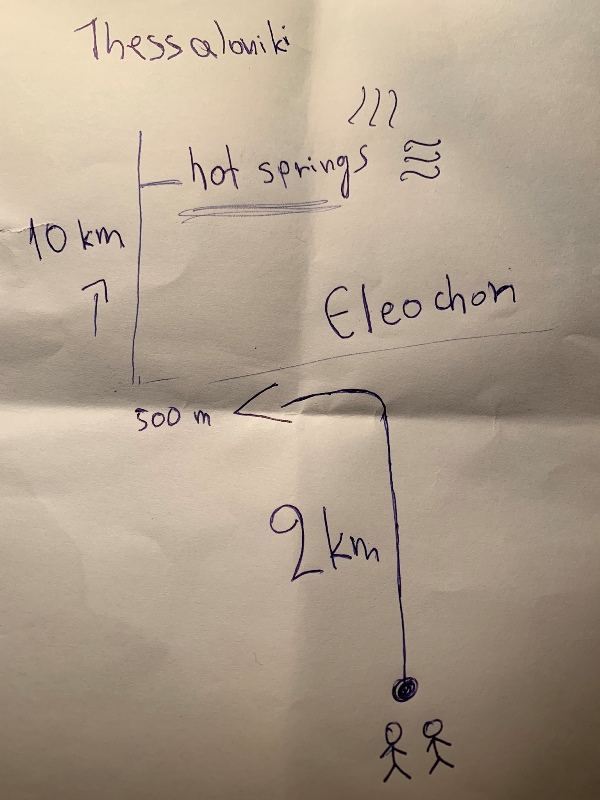 Thessaloniki
hot springs
10 km
Eleochori
500 m
2 km